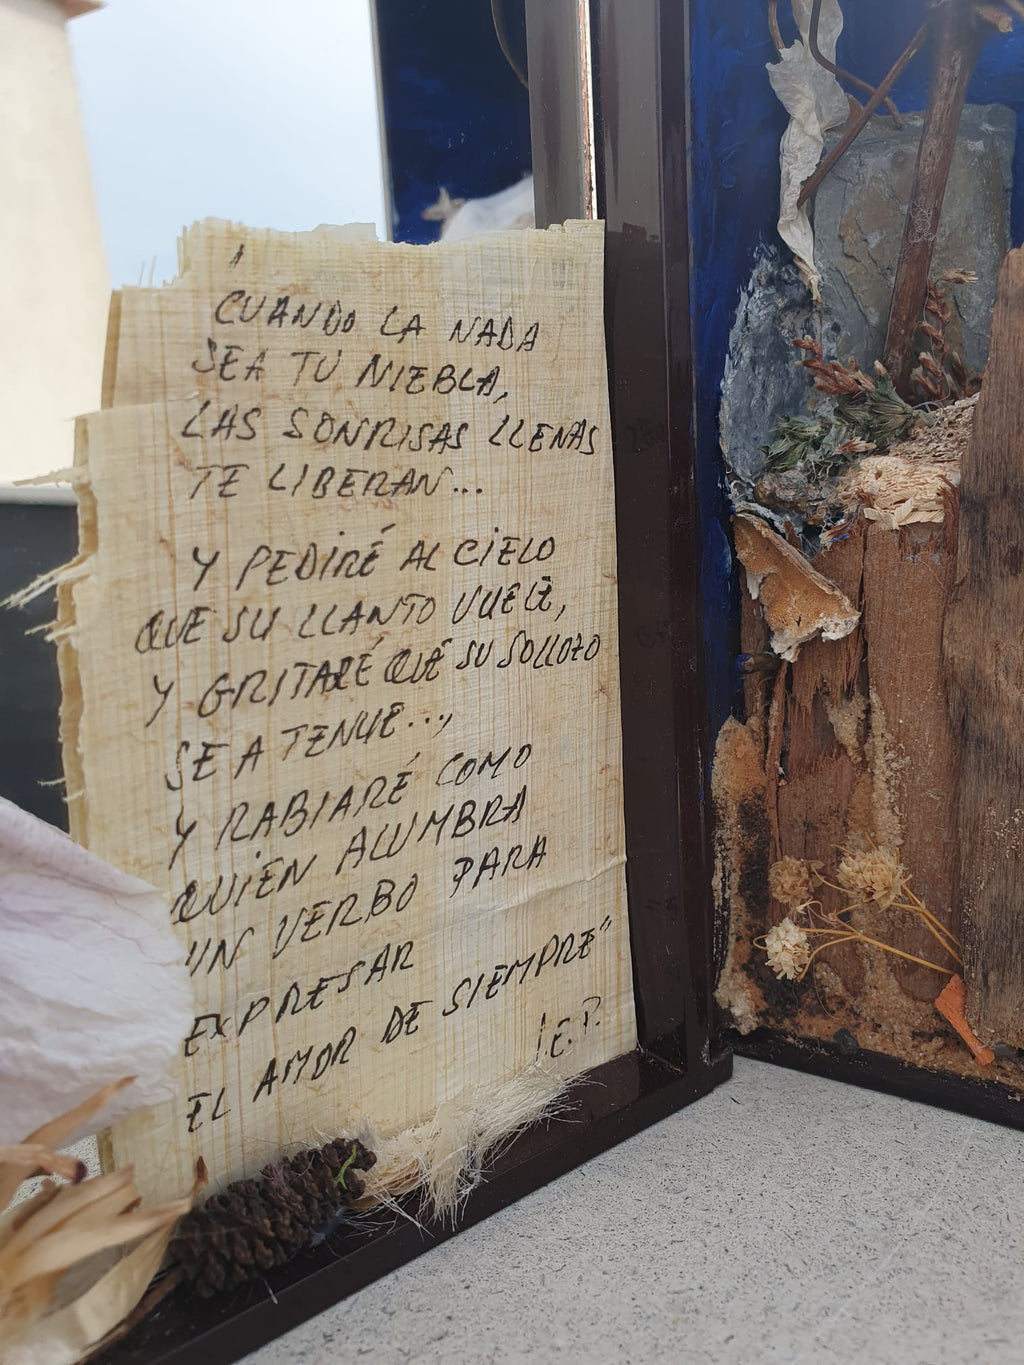 CUANDO LA NADA
SEA TU NIEBLA,
LAS SONRISAS LLENAS
TE LIBERAN...
Y PEDIRÉ AL CIELO
QUE SU LLANTO VUELE,
Y GRITARÉ QUÉ SU SOLLOZO
SEA TENUE...,
Y RABIARÉ COMO
QUIÉN ALUMBRA
UN VERBO PARA
EXPRESAR
EL AMOR DE SIEMPRE"
I.E.P.